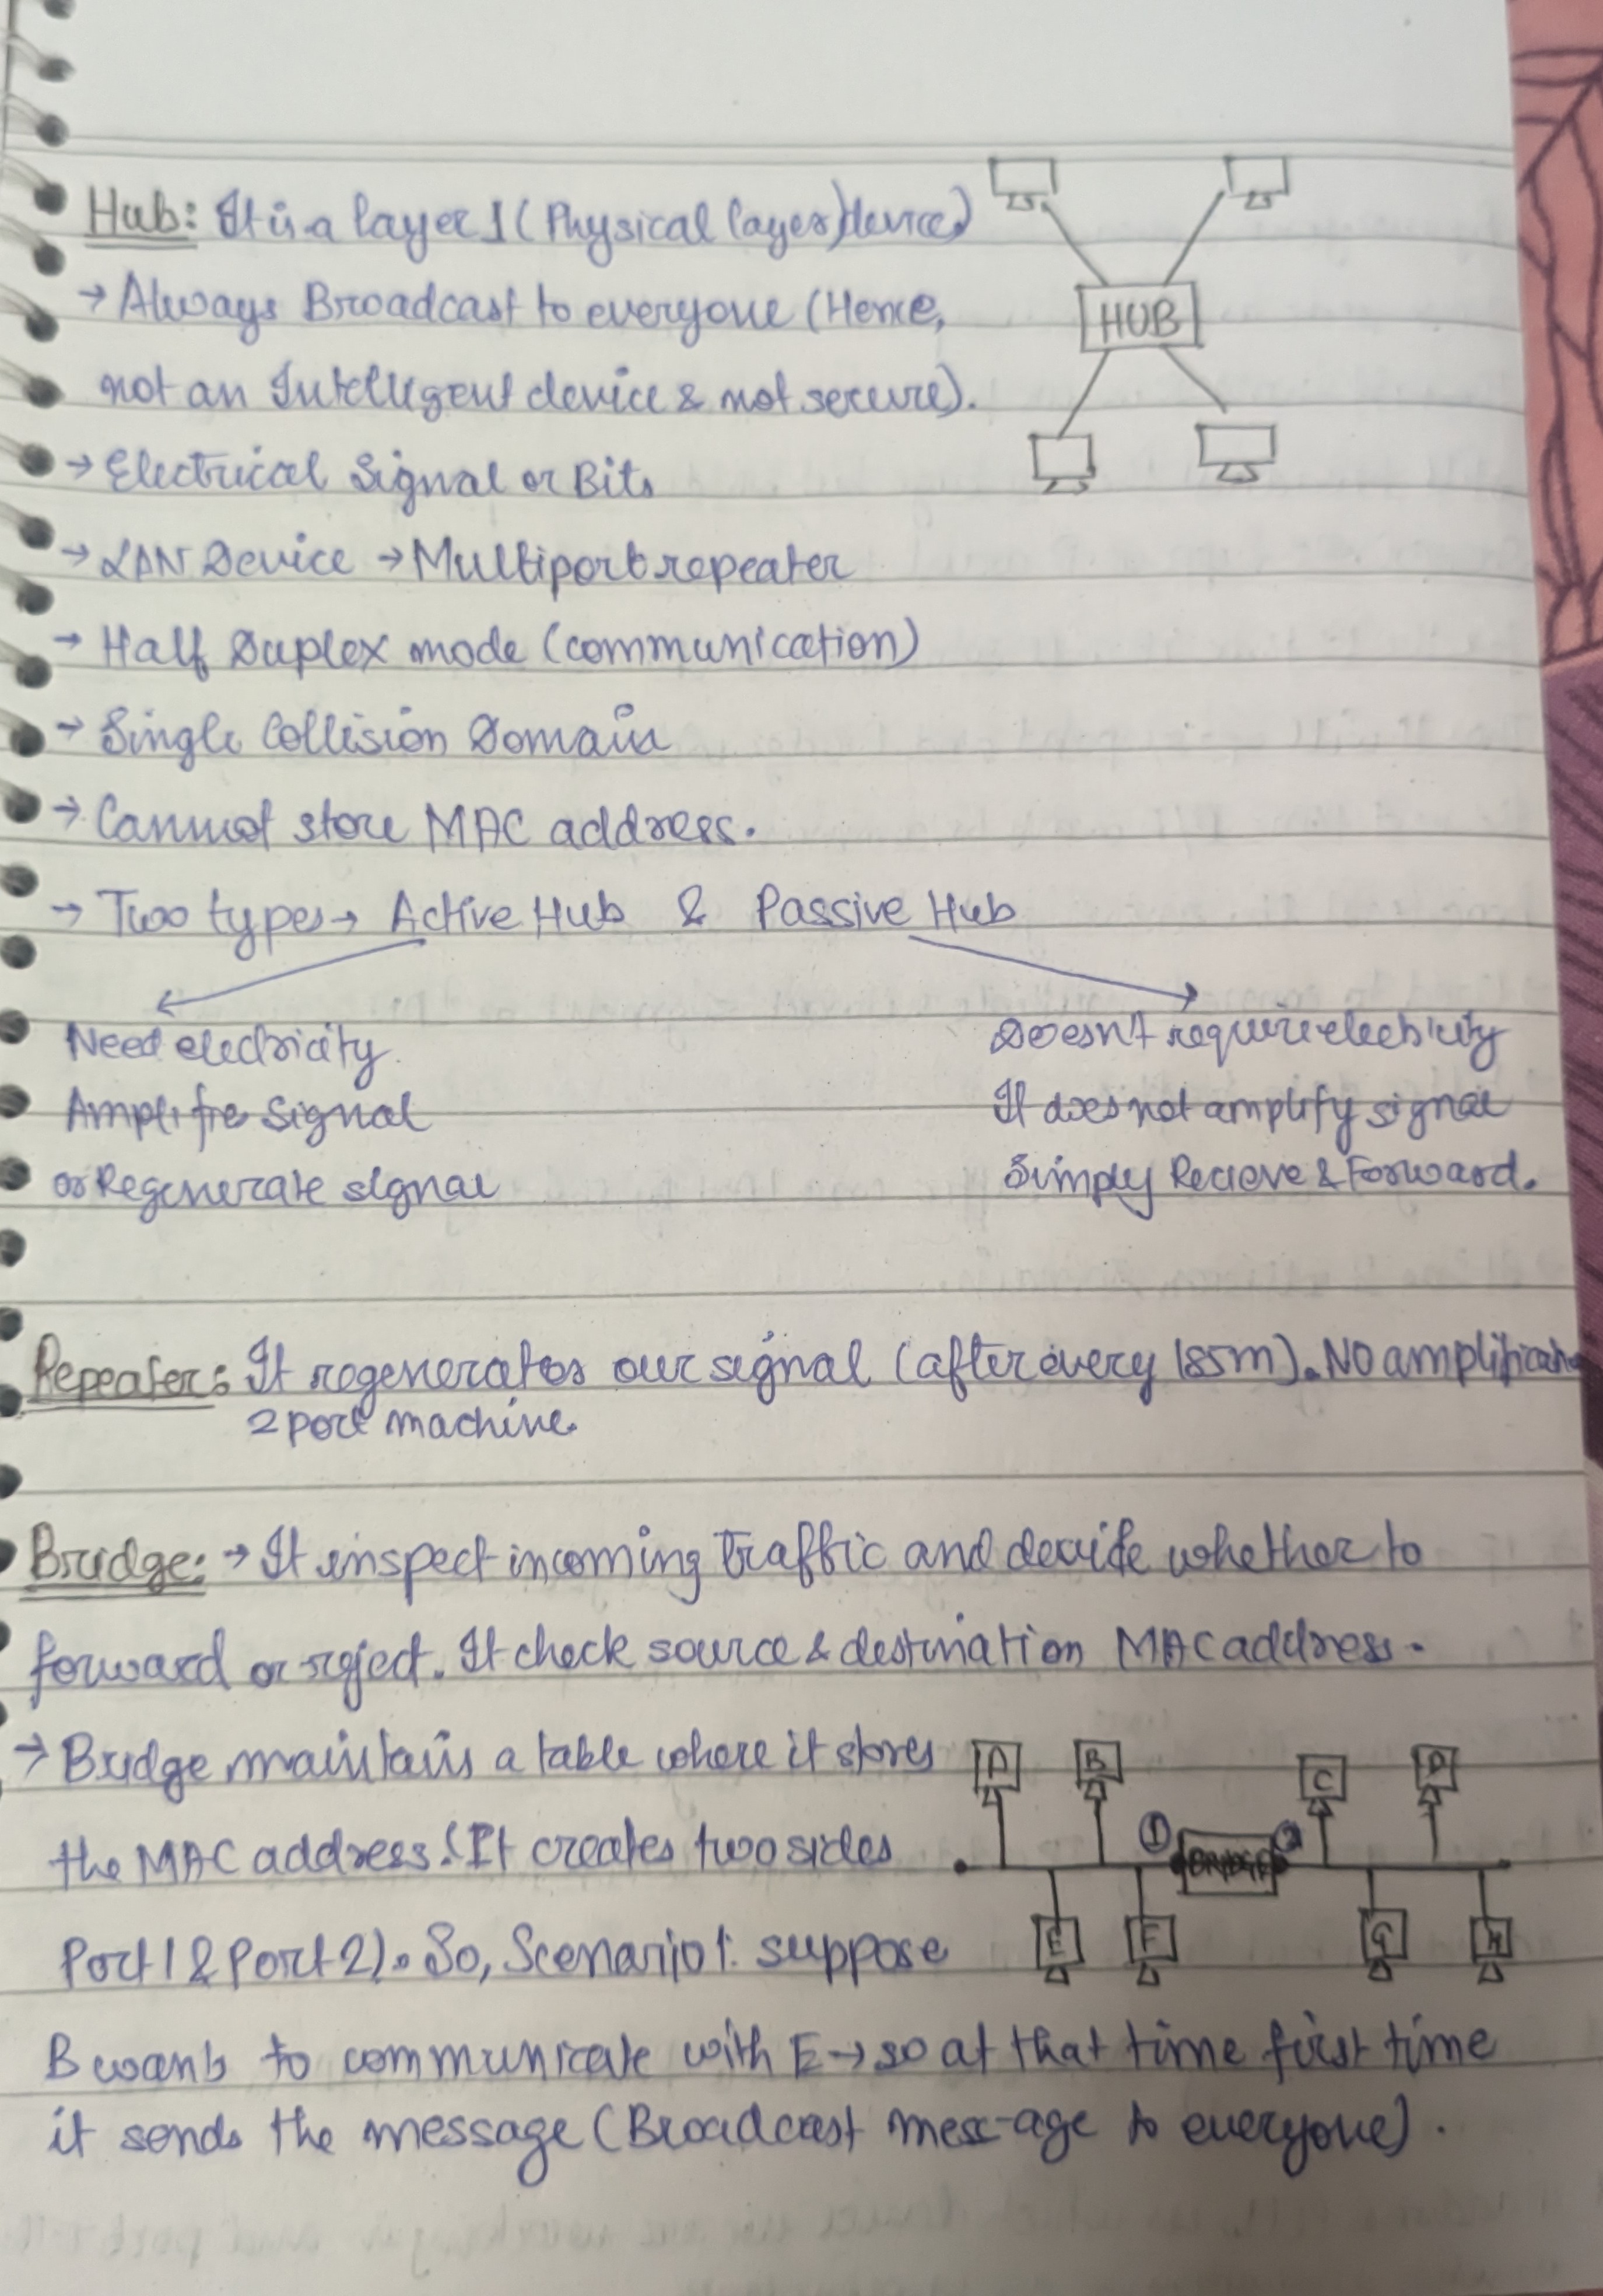 Hub: It is a layer 1 (Physical layer) device)
→ Always Broadcast to everyone (Hence,
HUB
not an Intelligent device & not secure).
→ Electrical Signal or Bits
→ LAN Device → Multiport repeater
→ Half Duplex mode (communication)
→ Single Collision Domain
→ Cannot store MAC address.
→ Two types → Active Hub & Passive Hub
Need electricity
Doesn't require electricity
Amplifie Signal
It does not amplify signal
or Regenerate signal
Simply Recieve & Forward.
Repeater: It regenerates our signal (after every 185m). No amplification
2 port machine.
Bridge: → It inspect incoming traffic and decide whether to
forward or reject. It check source & destination MAC address.
→ Bridge maintains a table where it stores
A B C D
the MAC address. (It creates two sides
① BRIDGE ②
Port 1 & Port 2). So, Scenario 1: suppose
E F G H
B wants to communicate with E → so at that time first time
it sends the message (Broadcast mess-age to everyone).